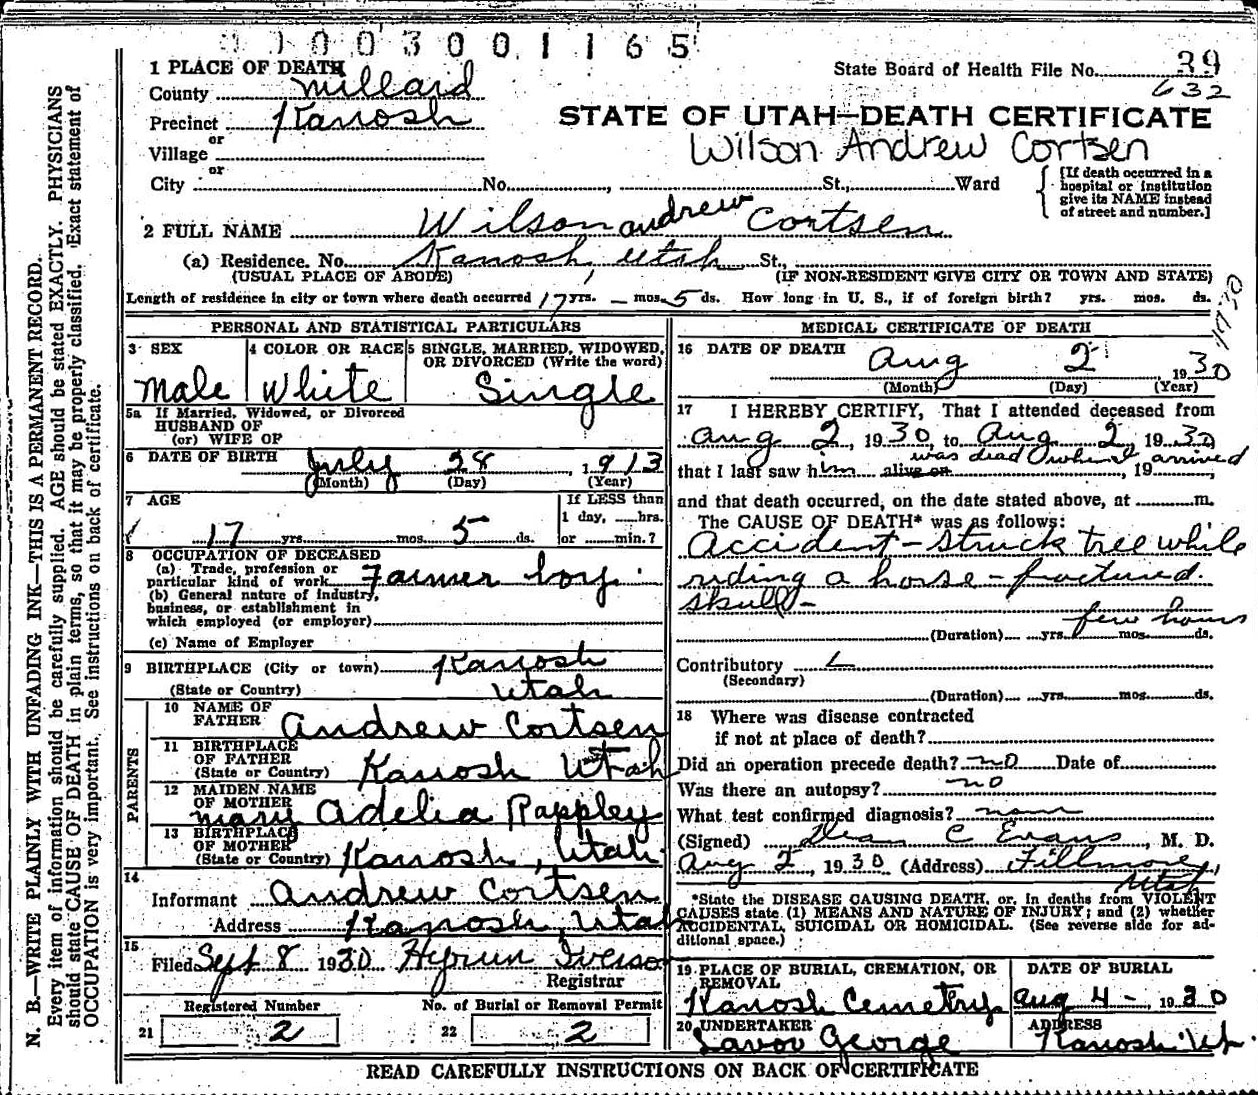 0 1 0 0 3 0 0 1 1 6 5
1 PLACE OF DEATH
County Millard
Precinct Kanosh
or
Village
or
City No. , St., Ward
State Board of Health File No. 39
632
STATE OF UTAH—DEATH CERTIFICATE
Wilson Andrew Cortsen
[If death occurred in a
hospital or institution
give its NAME instead
of street and number.]
2 FULL NAME Wilson Andrew Cortsen
(a) Residence. No. Kanosh, Utah St.,
(USUAL PLACE OF ABODE) (IF NON-RESIDENT GIVE CITY OR TOWN AND STATE)
Length of residence in city or town where death occurred 17 yrs. – mos. 5 ds. How long in U. S., if of foreign birth? yrs. mos. ds.
1930
PERSONAL AND STATISTICAL PARTICULARS
3 SEX
Male
4 COLOR OR RACE
White
5 SINGLE, MARRIED, WIDOWED,
OR DIVORCED (Write the word)
Single
5a If Married, Widowed, or Divorced
HUSBAND OF
(or) WIFE OF
6 DATE OF BIRTH July 28, 1913
(Month) (Day) (Year)
7 AGE
17 yrs. mos. 5 ds.
If LESS than
1 day, hrs.
or min.?
8 OCCUPATION OF DECEASED
(a) Trade, profession or
particular kind of work Farmer boy
(b) General nature of industry,
business, or establishment in
which employed (or employer)
(c) Name of Employer
9 BIRTHPLACE (City or town) Kanosh
(State or Country) Utah
PARENTS
10 NAME OF
FATHER Andrew Cortsen
11 BIRTHPLACE
OF FATHER
(State or Country) Kanosh Utah
12 MAIDEN NAME
OF MOTHER
Mary Adelia Rappley
13 BIRTHPLACE
OF MOTHER
(State or Country) Kanosh, Utah.
14
Informant Andrew Cortsen
Address Kanosh, Utah
15
Filed Sept 8 1930 Hyrum Iverson
Registrar
Registered Number
21 2
No. of Burial or Removal Permit
22 2
MEDICAL CERTIFICATE OF DEATH
16 DATE OF DEATH Aug 2 1930
(Month) (Day) (Year)
17 I HEREBY CERTIFY, That I attended deceased from
Aug 2, 1930, to Aug 2, 1930
was dead when I arrived
that I last saw him alive on , 19
and that death occurred, on the date stated above, at m.
The CAUSE OF DEATH* was as follows:
Accident – Struck tree while
riding a horse – fractured
skull –
few hours
(Duration) yrs. mos. ds.
Contributory
(Secondary)
(Duration) yrs. mos. ds.
18 Where was disease contracted
if not at place of death?
Did an operation precede death? no Date of
Was there an autopsy? no
What test confirmed diagnosis?
(Signed) C Evans, M. D.
Aug 2, 1930 (Address) Fillmore,
Utah
*State the DISEASE CAUSING DEATH, or, in deaths from VIOLENT
CAUSES state (1) MEANS AND NATURE OF INJURY; and (2) whether
ACCIDENTAL, SUICIDAL OR HOMICIDAL. (See reverse side for ad-
ditional space.)
19 PLACE OF BURIAL, CREMATION, OR
REMOVAL
Kanosh Cemetry
DATE OF BURIAL
Aug 4 – 1930
20 UNDERTAKER
Lavov George
ADDRESS
Kanosh Ut.
READ CAREFULLY INSTRUCTIONS ON BACK OF CERTIFICATE
N. B.—WRITE PLAINLY WITH UNFADING INK—THIS IS A PERMANENT RECORD.
Every item of information should be carefully supplied. AGE should be stated EXACTLY. PHYSICIANS
should state CAUSE OF DEATH in plain terms, so that it may be properly classified. Exact statement of
OCCUPATION is very important. See instructions on back of certificate.